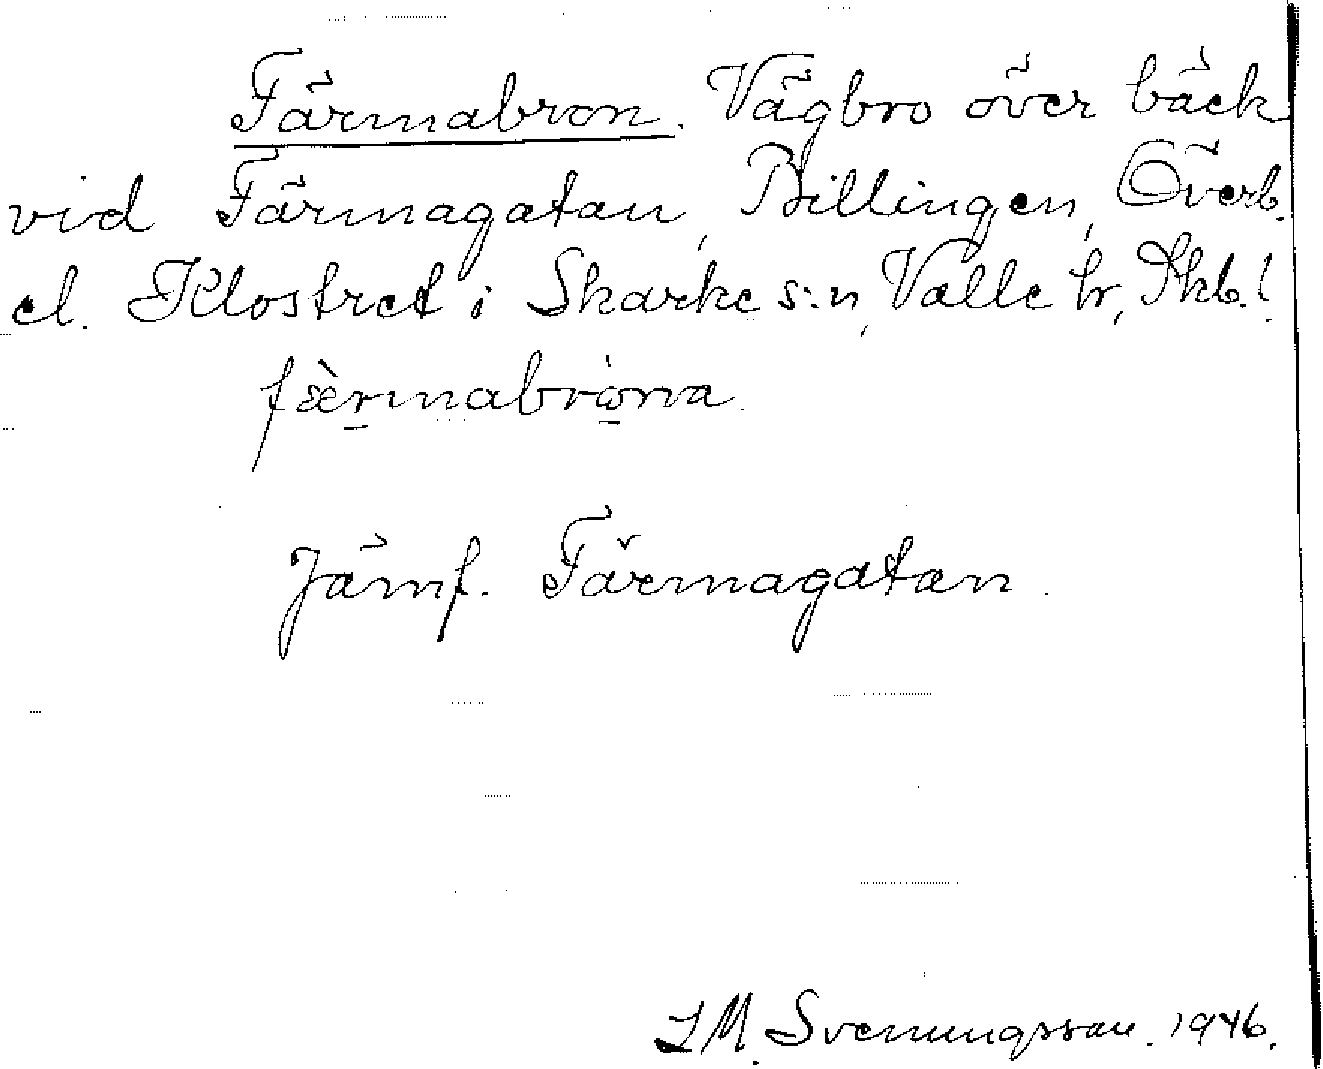 Färmabron. Vägbro över bäck
vid Färmagatan, Billingen, Överb.
el. Klostret i Skarke s:n, Valle hr, Skb. l.
fær̠mabrȯ̠na.
Jämf. Färmagatan.
L M. Svenungsson. 1946.